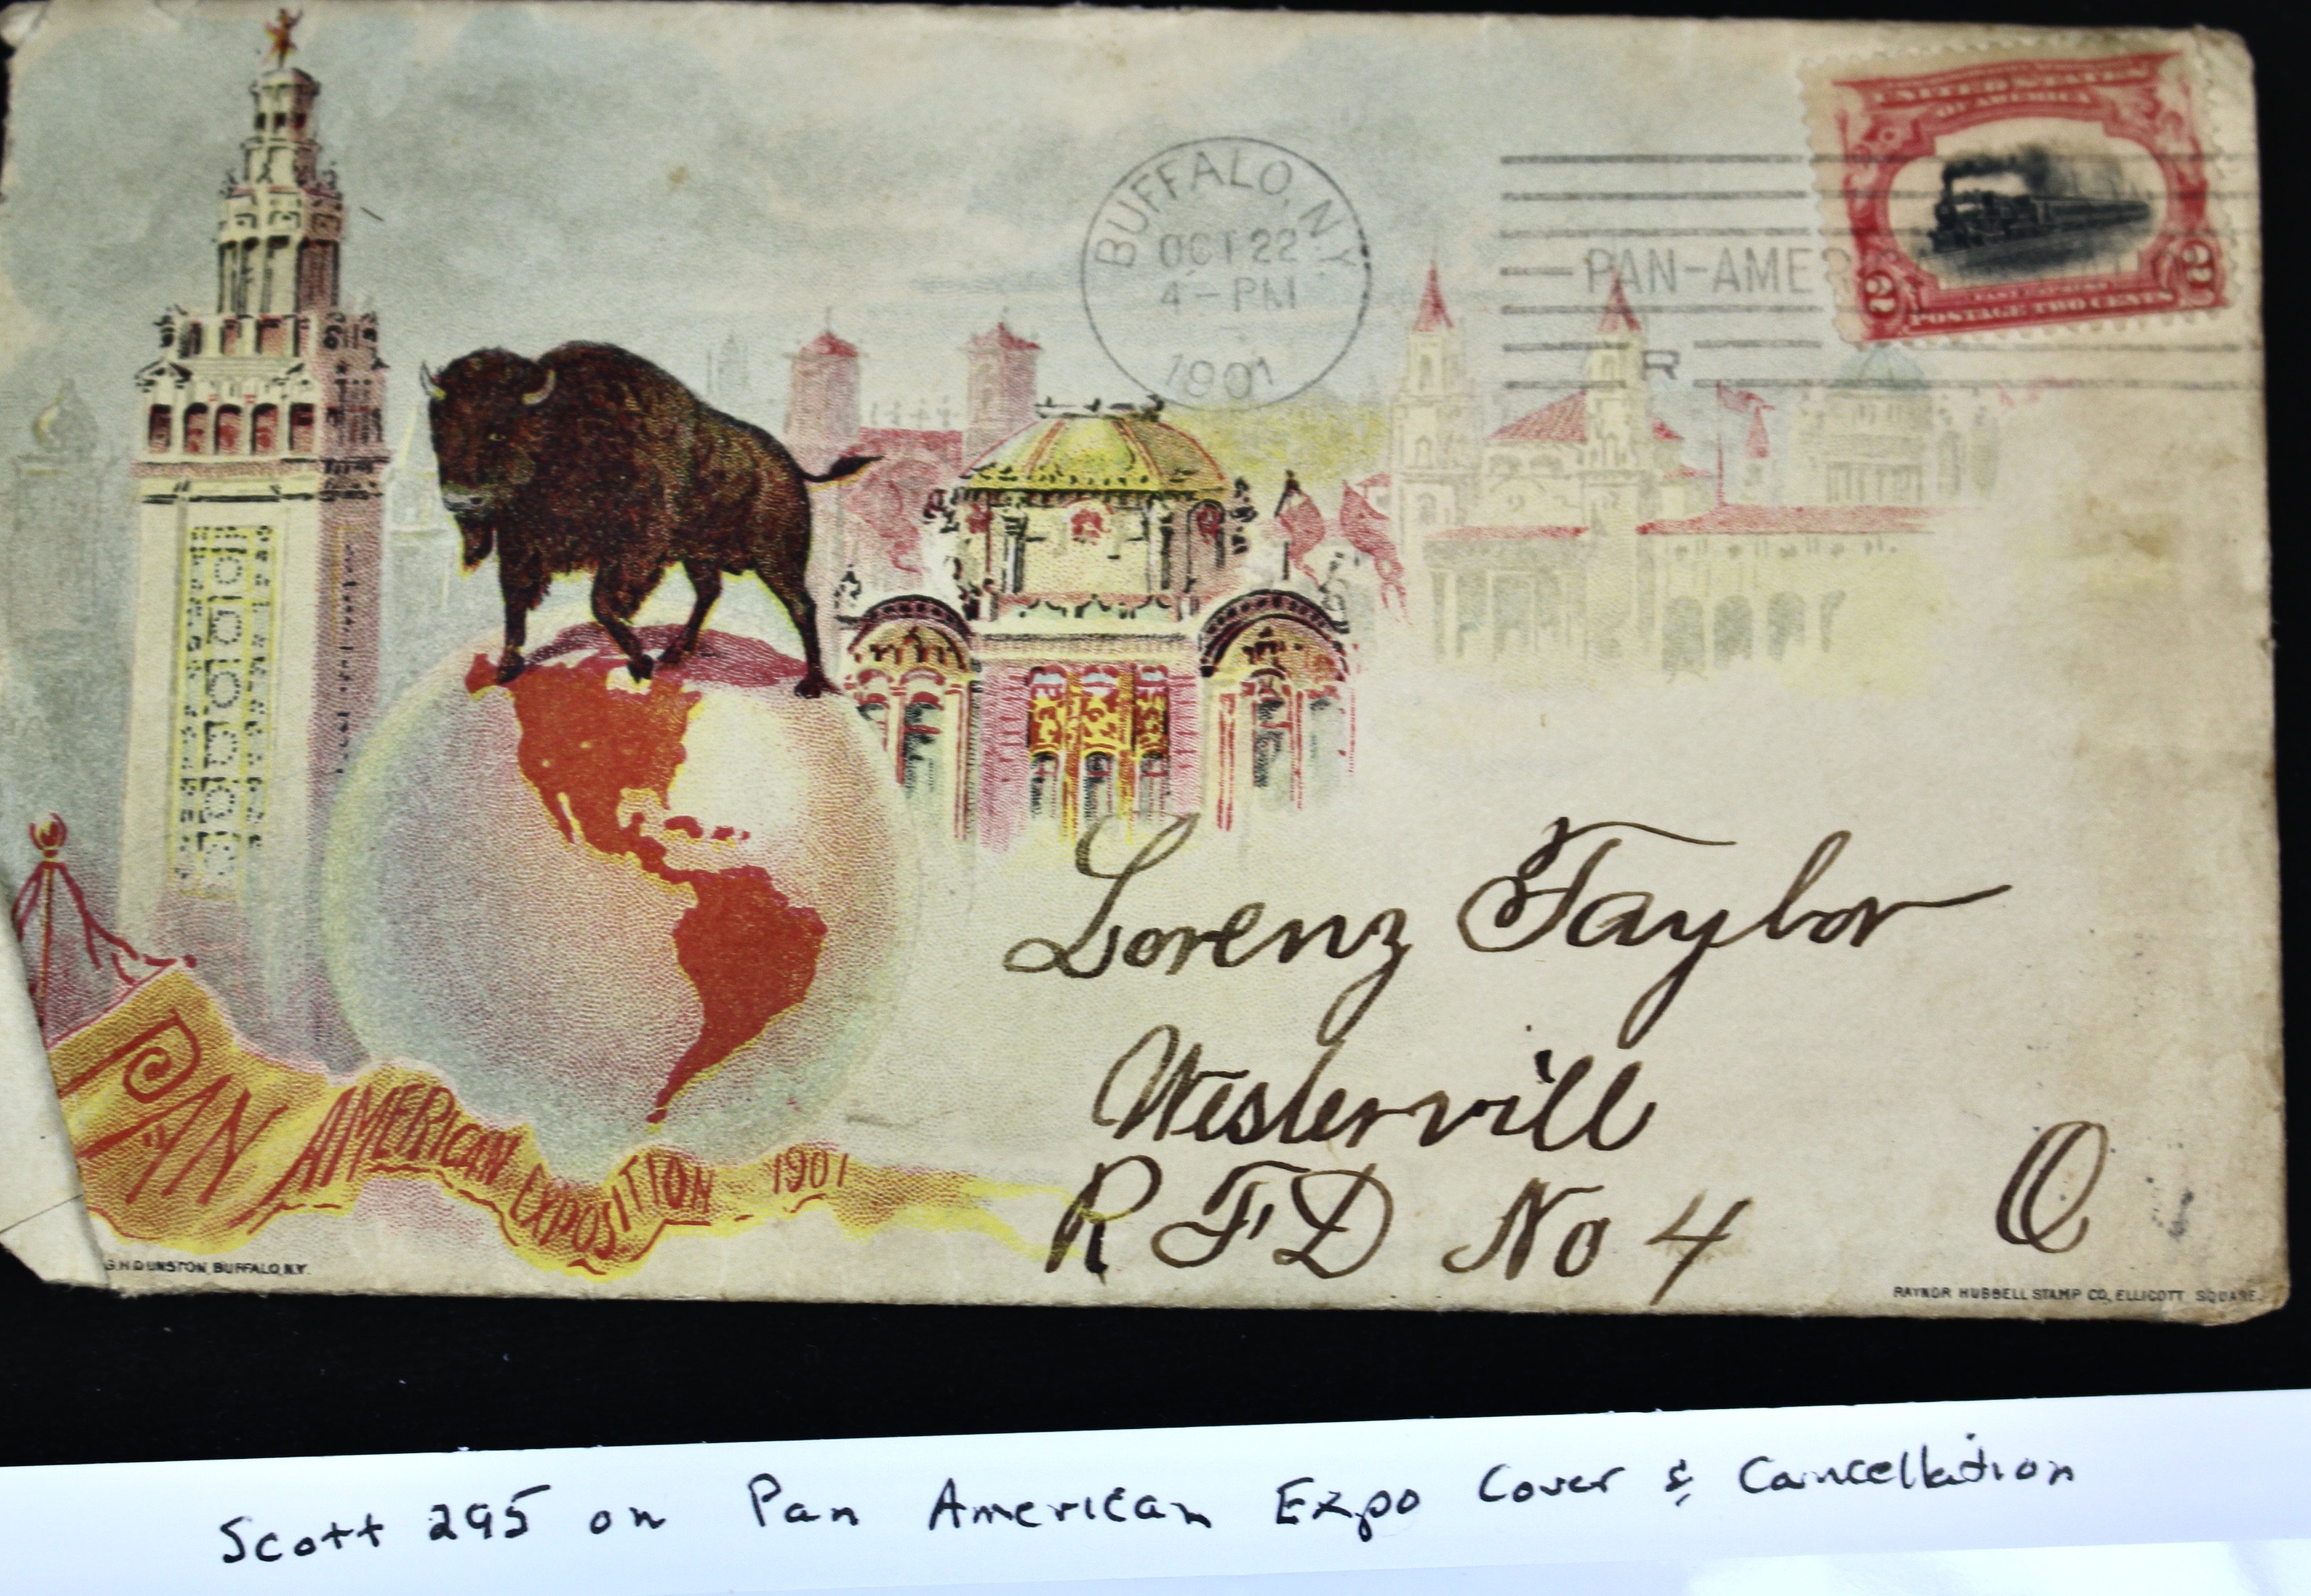 UNITED STATES
OF AMERICA
BUFFALO, N.Y.
OCT 22
4-PM
1901
PAN-AMER
R
2 2
POSTAGE TWO CENTS
Lorenz Taylor
Westervill
R F D No 4 O
PAN AMERICAN EXPOSITION 1901
G.H DUNSTON, BUFFALO, N.Y.
RAYNOR HUBBELL STAMP CO, ELLICOTT SQUARE.
Scott 295 on Pan American Expo Cover & Cancellation